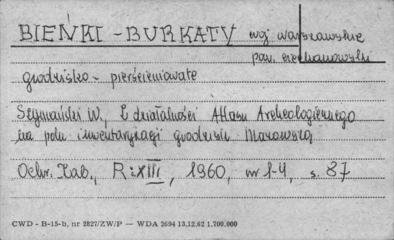 BIEŃKI - BURKATY woj. warszawskie
pow. ciechanowski
grodzisko - pierścieniowate
Szymański W., Z działalności Atlasu Archeologicznego
na polu inwentaryzacji grodzisk Mazowsza,
Ochr. Zab., R: XIII, 1960, nr 1-4, s. 87
CWD - B-15-b, nr 2827/ZW/P — WDA 2694 13.12.62 1.700.000